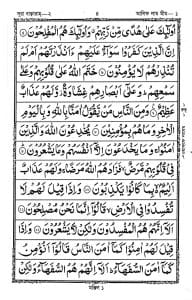 সূরা বাক্বারাহ—২ ৪ আলিফ লাম মীম—১
اُولٰٓئِكَ عَلٰى هُدًى مِّنْ رَّبِّهِمْ وَاُولٰٓئِكَ هُمُ الْمُفْلِحُوْنَ
اِنَّ الَّذِيْنَ كَفَرُوْا سَوَآءٌ عَلَيْهِمْ ءَاَنْذَرْتَهُمْ اَمْ لَمْ
تُنْذِرْهُمْ لَا يُؤْمِنُوْنَ خَتَمَ اللّٰهُ عَلٰى قُلُوْبِهِمْ وَعَلٰى
سَمْعِهِمْ وَعَلٰٓى اَبْصَارِهِمْ غِشَاوَةٌ وَّلَهُمْ عَذَابٌ
عَظِيْمٌ وَمِنَ النَّاسِ مَنْ يَّقُوْلُ اٰمَنَّا بِاللّٰهِ وَبِالْيَوْمِ
الْاٰخِرِ وَمَا هُمْ بِمُؤْمِنِيْنَ يُخٰدِعُوْنَ اللّٰهَ وَالَّذِيْنَ
اٰمَنُوْا وَمَا يَخْدَعُوْنَ اِلَّآ اَنْفُسَهُمْ وَمَا يَشْعُرُوْنَ
فِيْ قُلُوْبِهِمْ مَّرَضٌ فَزَادَهُمُ اللّٰهُ مَرَضًا وَلَهُمْ عَذَابٌ
اَلِيْمٌ بِمَا كَانُوْا يَكْذِبُوْنَ وَاِذَا قِيْلَ لَهُمْ لَا
تُفْسِدُوْا فِي الْاَرْضِ قَالُوْٓا اِنَّمَا نَحْنُ مُصْلِحُوْنَ
اَلَآ اِنَّهُمْ هُمُ الْمُفْسِدُوْنَ وَلٰكِنْ لَّا يَشْعُرُوْنَ وَاِذَا
قِيْلَ لَهُمْ اٰمِنُوْا كَمَآ اٰمَنَ النَّاسُ قَالُوْٓا اَنُؤْمِنُ
كَمَآ اٰمَنَ السُّفَهَآءُ اَلَآ اِنَّهُمْ هُمُ السُّفَهَآءُ وَلٰكِنْ
মঞ্জিল ১